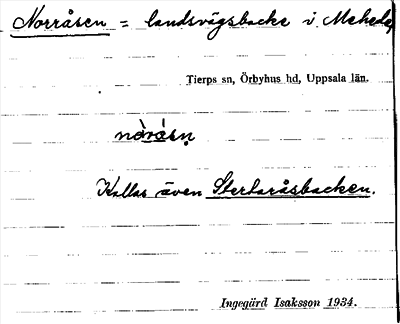 Norråsen = landsvägsbacke i Mehede,
Tierps sn, Örbyhus hd, Uppsala län.
nòråsn
Kallas även Stertaråsbacken.
Ingegärd Isaksson 1934.